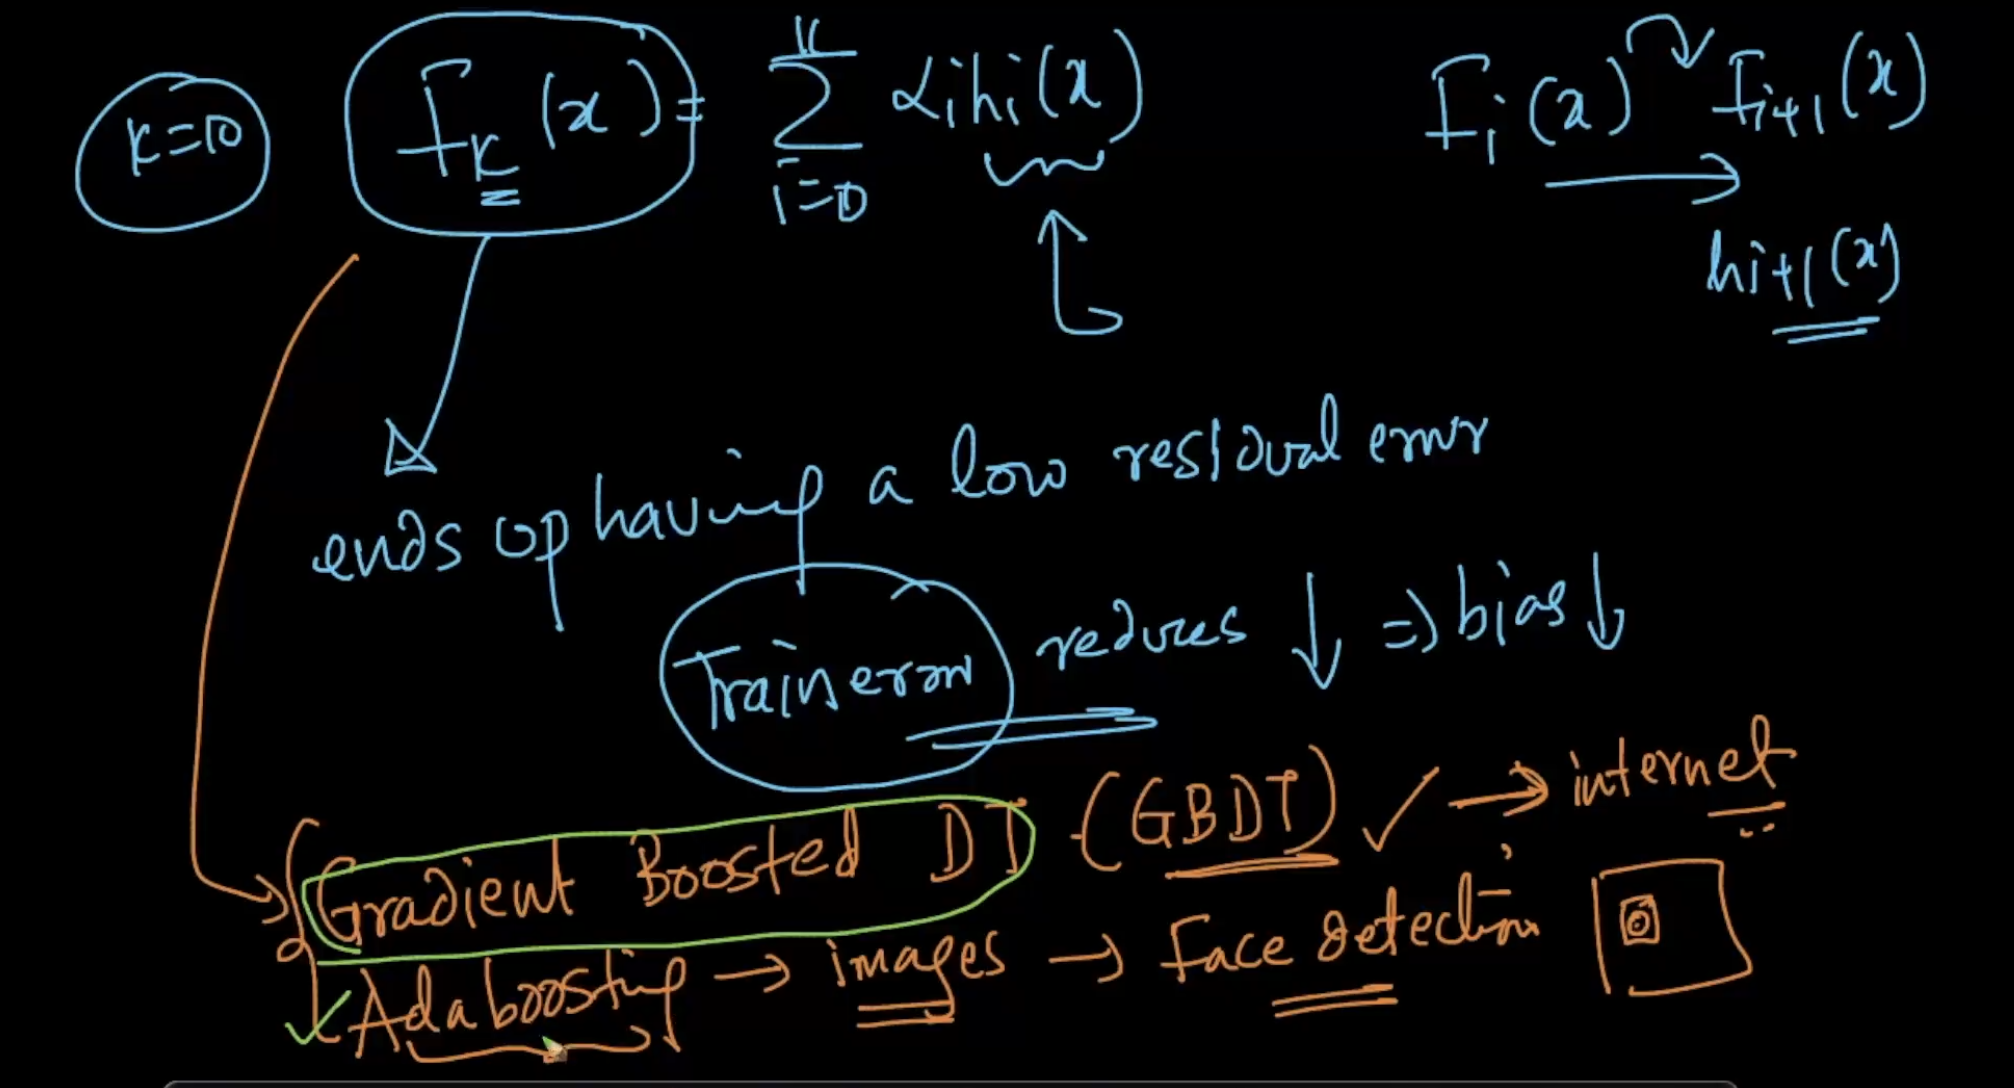 k=10
F_k(x) = Σ_{i=0}^{k} α_i h_i(x)
F_i(x) F_{i+1}(x)
h_{i+1}(x)
ends up having a low residual error
Train error reduces ↓ ⇒ bias ↓
Gradient Boosted DT (GBDT) ✓ → internet
✓ Adaboosting → images → Face detection